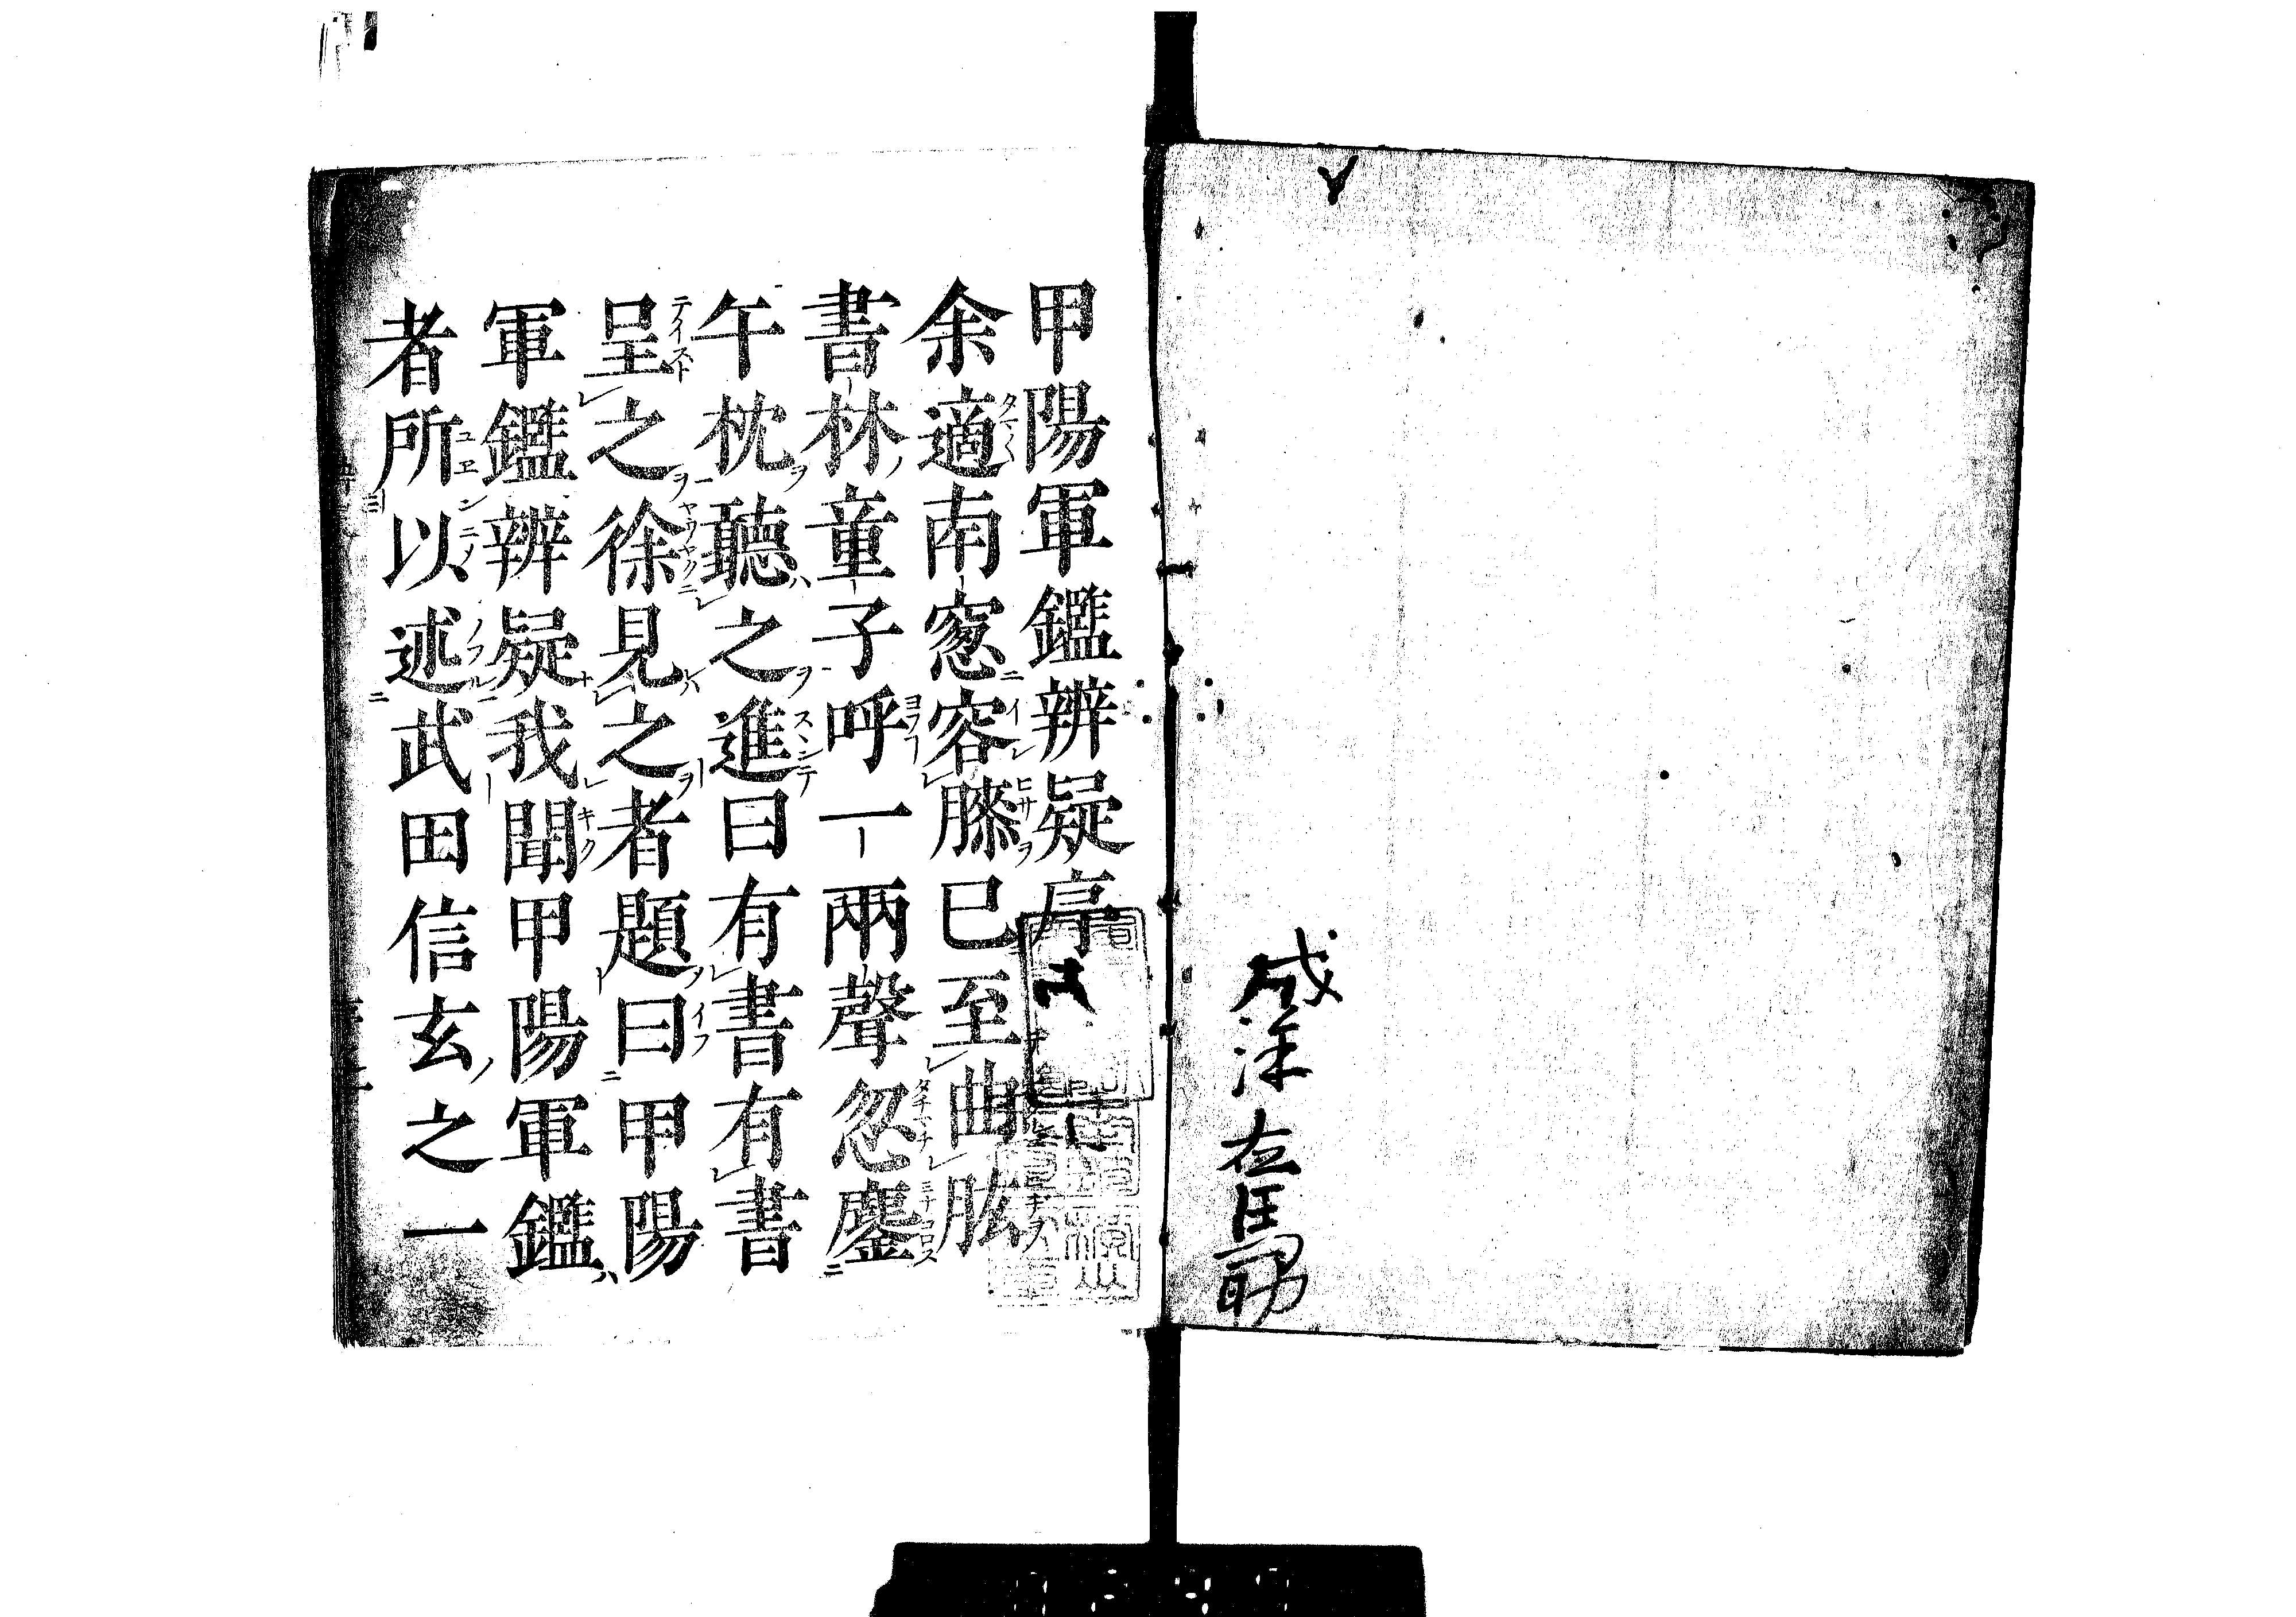 左馬助
甲陽軍鑑辨疑序
余適南窓容膝已至曲肱
書林童子呼一兩聲忽鏖
午枕聽之進曰有書有書
呈之徐見之者題曰甲陽
軍鑑辨疑我聞甲陽軍鑑
者所以述武田信玄之一